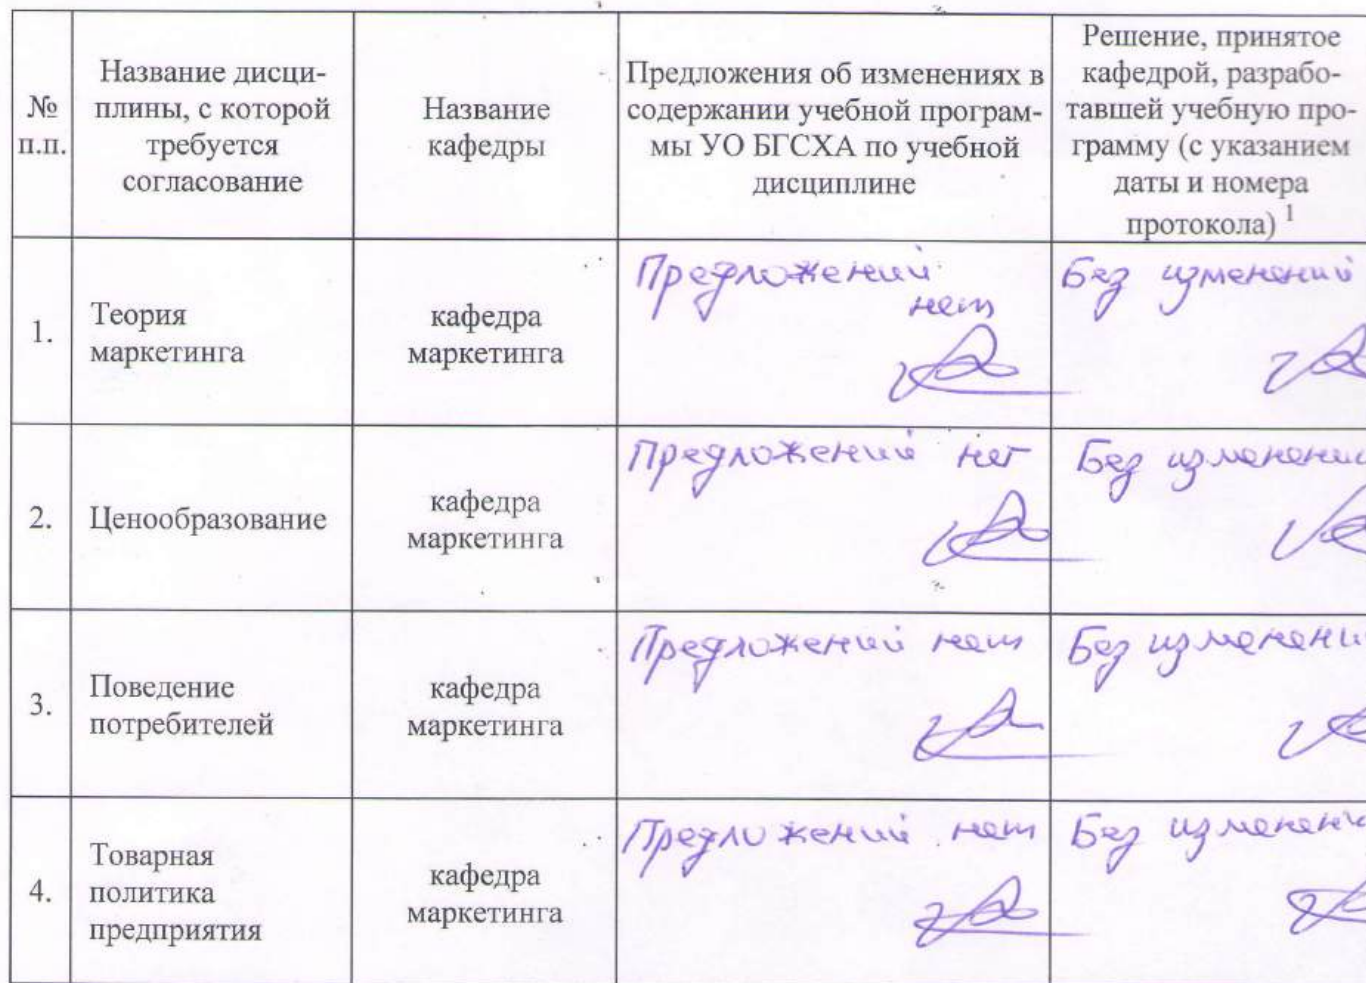 №
п.п.
Название дисци-
плины, с которой
требуется
согласование
Название
кафедры
Предложения об изменениях в
содержании учебной програм-
мы УО БГСХА по учебной
дисциплине
Решение, принятое
кафедрой, разрабо-
тавшей учебную про-
грамму (с указанием
даты и номера
протокола) 1
1.
Теория
маркетинга
кафедра
маркетинга
Предложений
нет
Без изменений
2.
Ценообразование
кафедра
маркетинга
Предложений нет
Без изменений
3.
Поведение
потребителей
кафедра
маркетинга
Предложений нет
Без изменени
4.
Товарная
политика
предприятия
кафедра
маркетинга
Предложений нет
Без изменени